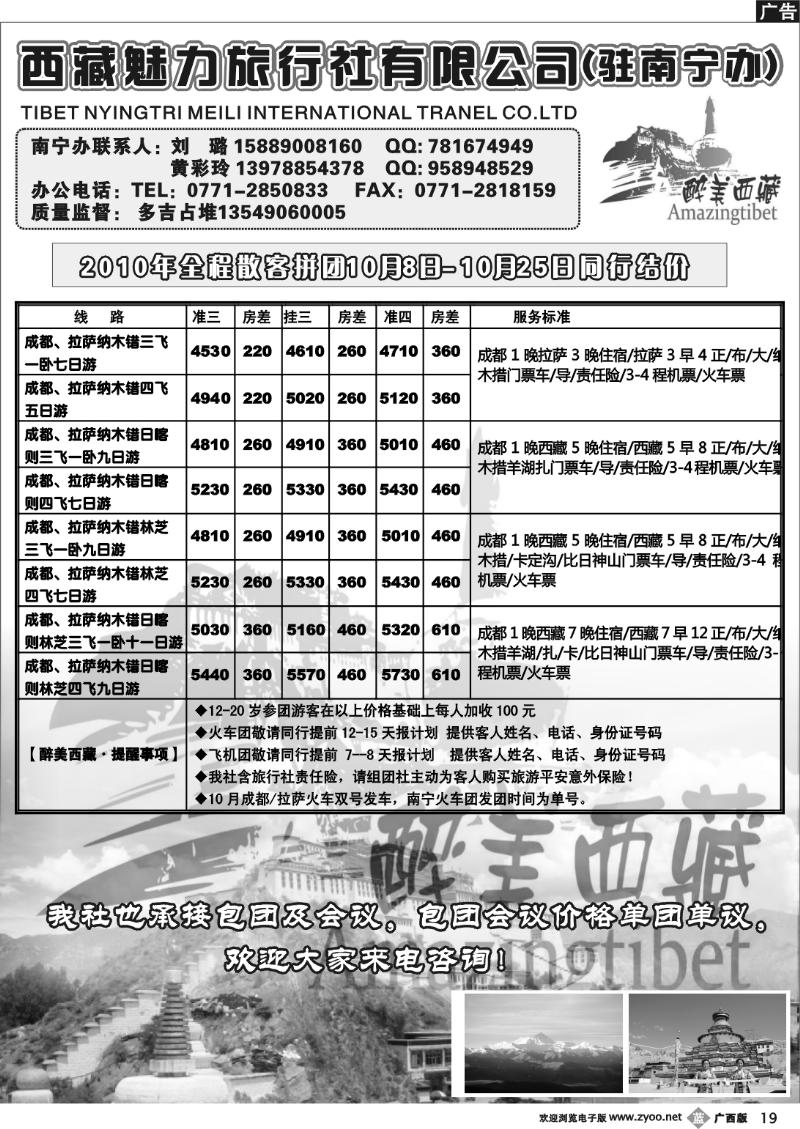 广告
西藏魅力旅行社有限公司(驻南宁办)
TIBET NYINGTRI MEILI INTERNATIONAL TRANEL CO.LTD
南宁办联系人：刘 璐 15889008160 QQ: 781674949
黄彩玲 13978854378 QQ: 958948529
办公电话：TEL：0771-2850833 FAX：0771-2818159
质量监督： 多吉占堆13549060005
醉美西藏
Amazingtibet
2010年全程散客拼团10月8日-10月25日同行结价
线 路 准三 房差 挂三 房差 准四 房差 服务标准
成都、拉萨纳木错三飞
一卧七日游 4530 220 4610 260 4710 360
成都、拉萨纳木错四飞
五日游 4940 220 5020 260 5120 360
成都 1 晚拉萨 3 晚住宿/拉萨 3 早 4 正/布/大/纳
木措门票车/导/责任险/3-4 程机票/火车票
成都、拉萨纳木错日喀
则三飞一卧九日游 4810 260 4910 360 5010 460
成都、拉萨纳木错日喀
则四飞七日游 5230 260 5330 360 5430 460
成都 1 晚西藏 5 晚住宿/西藏 5 早 8 正/布/大/纳
木措羊湖扎门票车/导/责任险/3-4 程机票/火车票
成都、拉萨纳木错林芝
三飞一卧九日游 4810 260 4910 360 5010 460
成都、拉萨纳木错林芝
四飞七日游 5230 260 5330 360 5430 460
成都 1 晚西藏 5 晚住宿/西藏 5 早 8 正/布/大/纳
木措/卡定沟/比日神山门票车/导/责任险/3-4 程
机票/火车票
成都、拉萨纳木错日喀
则林芝三飞一卧十一日游 5030 360 5160 460 5320 610
成都、拉萨纳木错日喀
则林芝四飞九日游 5440 360 5570 460 5730 610
成都 1 晚西藏 7 晚住宿/西藏 7 早 12 正/布/大/纳
木措羊湖/扎/卡/比日神山门票车/导/责任险/3-
程机票/火车票
【醉美西藏·提醒事项】
◆12-20 岁参团游客在以上价格基础上每人加收 100 元
◆火车团敬请同行提前 12-15 天报计划 提供客人姓名、电话、身份证号码
◆飞机团敬请同行提前 7--8 天报计划 提供客人姓名、电话、身份证号码
◆我社含旅行社责任险，请组团社主动为客人购买旅游平安意外保险！
◆10 月成都/拉萨火车双号发车，南宁火车团发团时间为单号。
醉美西藏
Amazingtibet
我社也承接包团及会议，包团会议价格单团单议，
欢迎大家来电咨询！
欢迎浏览电子版 www.zyoo.net 蓝 广西版 19